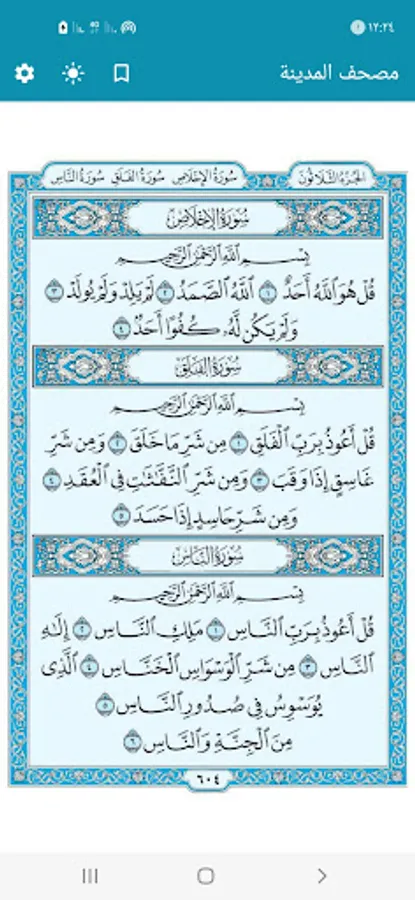 ١٢:٢٤
4G
مصحف المدينة
الجزء الثلاثون
سورة الإخلاص سورة الفلق سورة الناس
سُورَةُ الإِخْلَاصِ
بِسْمِ ٱللَّهِ ٱلرَّحْمَٰنِ ٱلرَّحِيمِ
قُلْ هُوَ ٱللَّهُ أَحَدٌ ١ ٱللَّهُ ٱلصَّمَدُ ٢ لَمْ يَلِدْ وَلَمْ يُولَدْ ٣
وَلَمْ يَكُن لَّهُۥ كُفُوًا أَحَدٌۢ ٤
سُورَةُ الفَلَقِ
بِسْمِ ٱللَّهِ ٱلرَّحْمَٰنِ ٱلرَّحِيمِ
قُلْ أَعُوذُ بِرَبِّ ٱلْفَلَقِ ١ مِن شَرِّ مَا خَلَقَ ٢ وَمِن شَرِّ
غَاسِقٍ إِذَا وَقَبَ ٣ وَمِن شَرِّ ٱلنَّفَّٰثَٰتِ فِى ٱلْعُقَدِ ٤
وَمِن شَرِّ حَاسِدٍ إِذَا حَسَدَ ٥
سُورَةُ النَّاسِ
بِسْمِ ٱللَّهِ ٱلرَّحْمَٰنِ ٱلرَّحِيمِ
قُلْ أَعُوذُ بِرَبِّ ٱلنَّاسِ ١ مَلِكِ ٱلنَّاسِ ٢ إِلَٰهِ
ٱلنَّاسِ ٣ مِن شَرِّ ٱلْوَسْوَاسِ ٱلْخَنَّاسِ ٤ ٱلَّذِى
يُوَسْوِسُ فِى صُدُورِ ٱلنَّاسِ ٥
مِنَ ٱلْجِنَّةِ وَٱلنَّاسِ ٦
٦٠٤